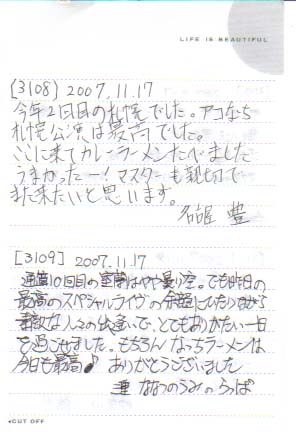 LIFE IS BEAUTIFUL
[3108] 2007.11.17
今年2回目の札幌でした。アコなっち
札幌公演は最高でした。
ここに来てカレーラーメンたべました
うまかったー!マスターも親切で
また来たいと思います。
名古屋 豊
[3109] 2007.11.17
通算10回目の室蘭はやや曇り空。でも昨日の
最高のスペシャルライヴの余韻にひたりながら
素敵な人々の出逢いで、とてもありがたい一日
を過ごせました。もちろん なっちラーメンは
今日も最高♪ ありがとうございました
ななつのうみのらっぱ
◂CUT OFF